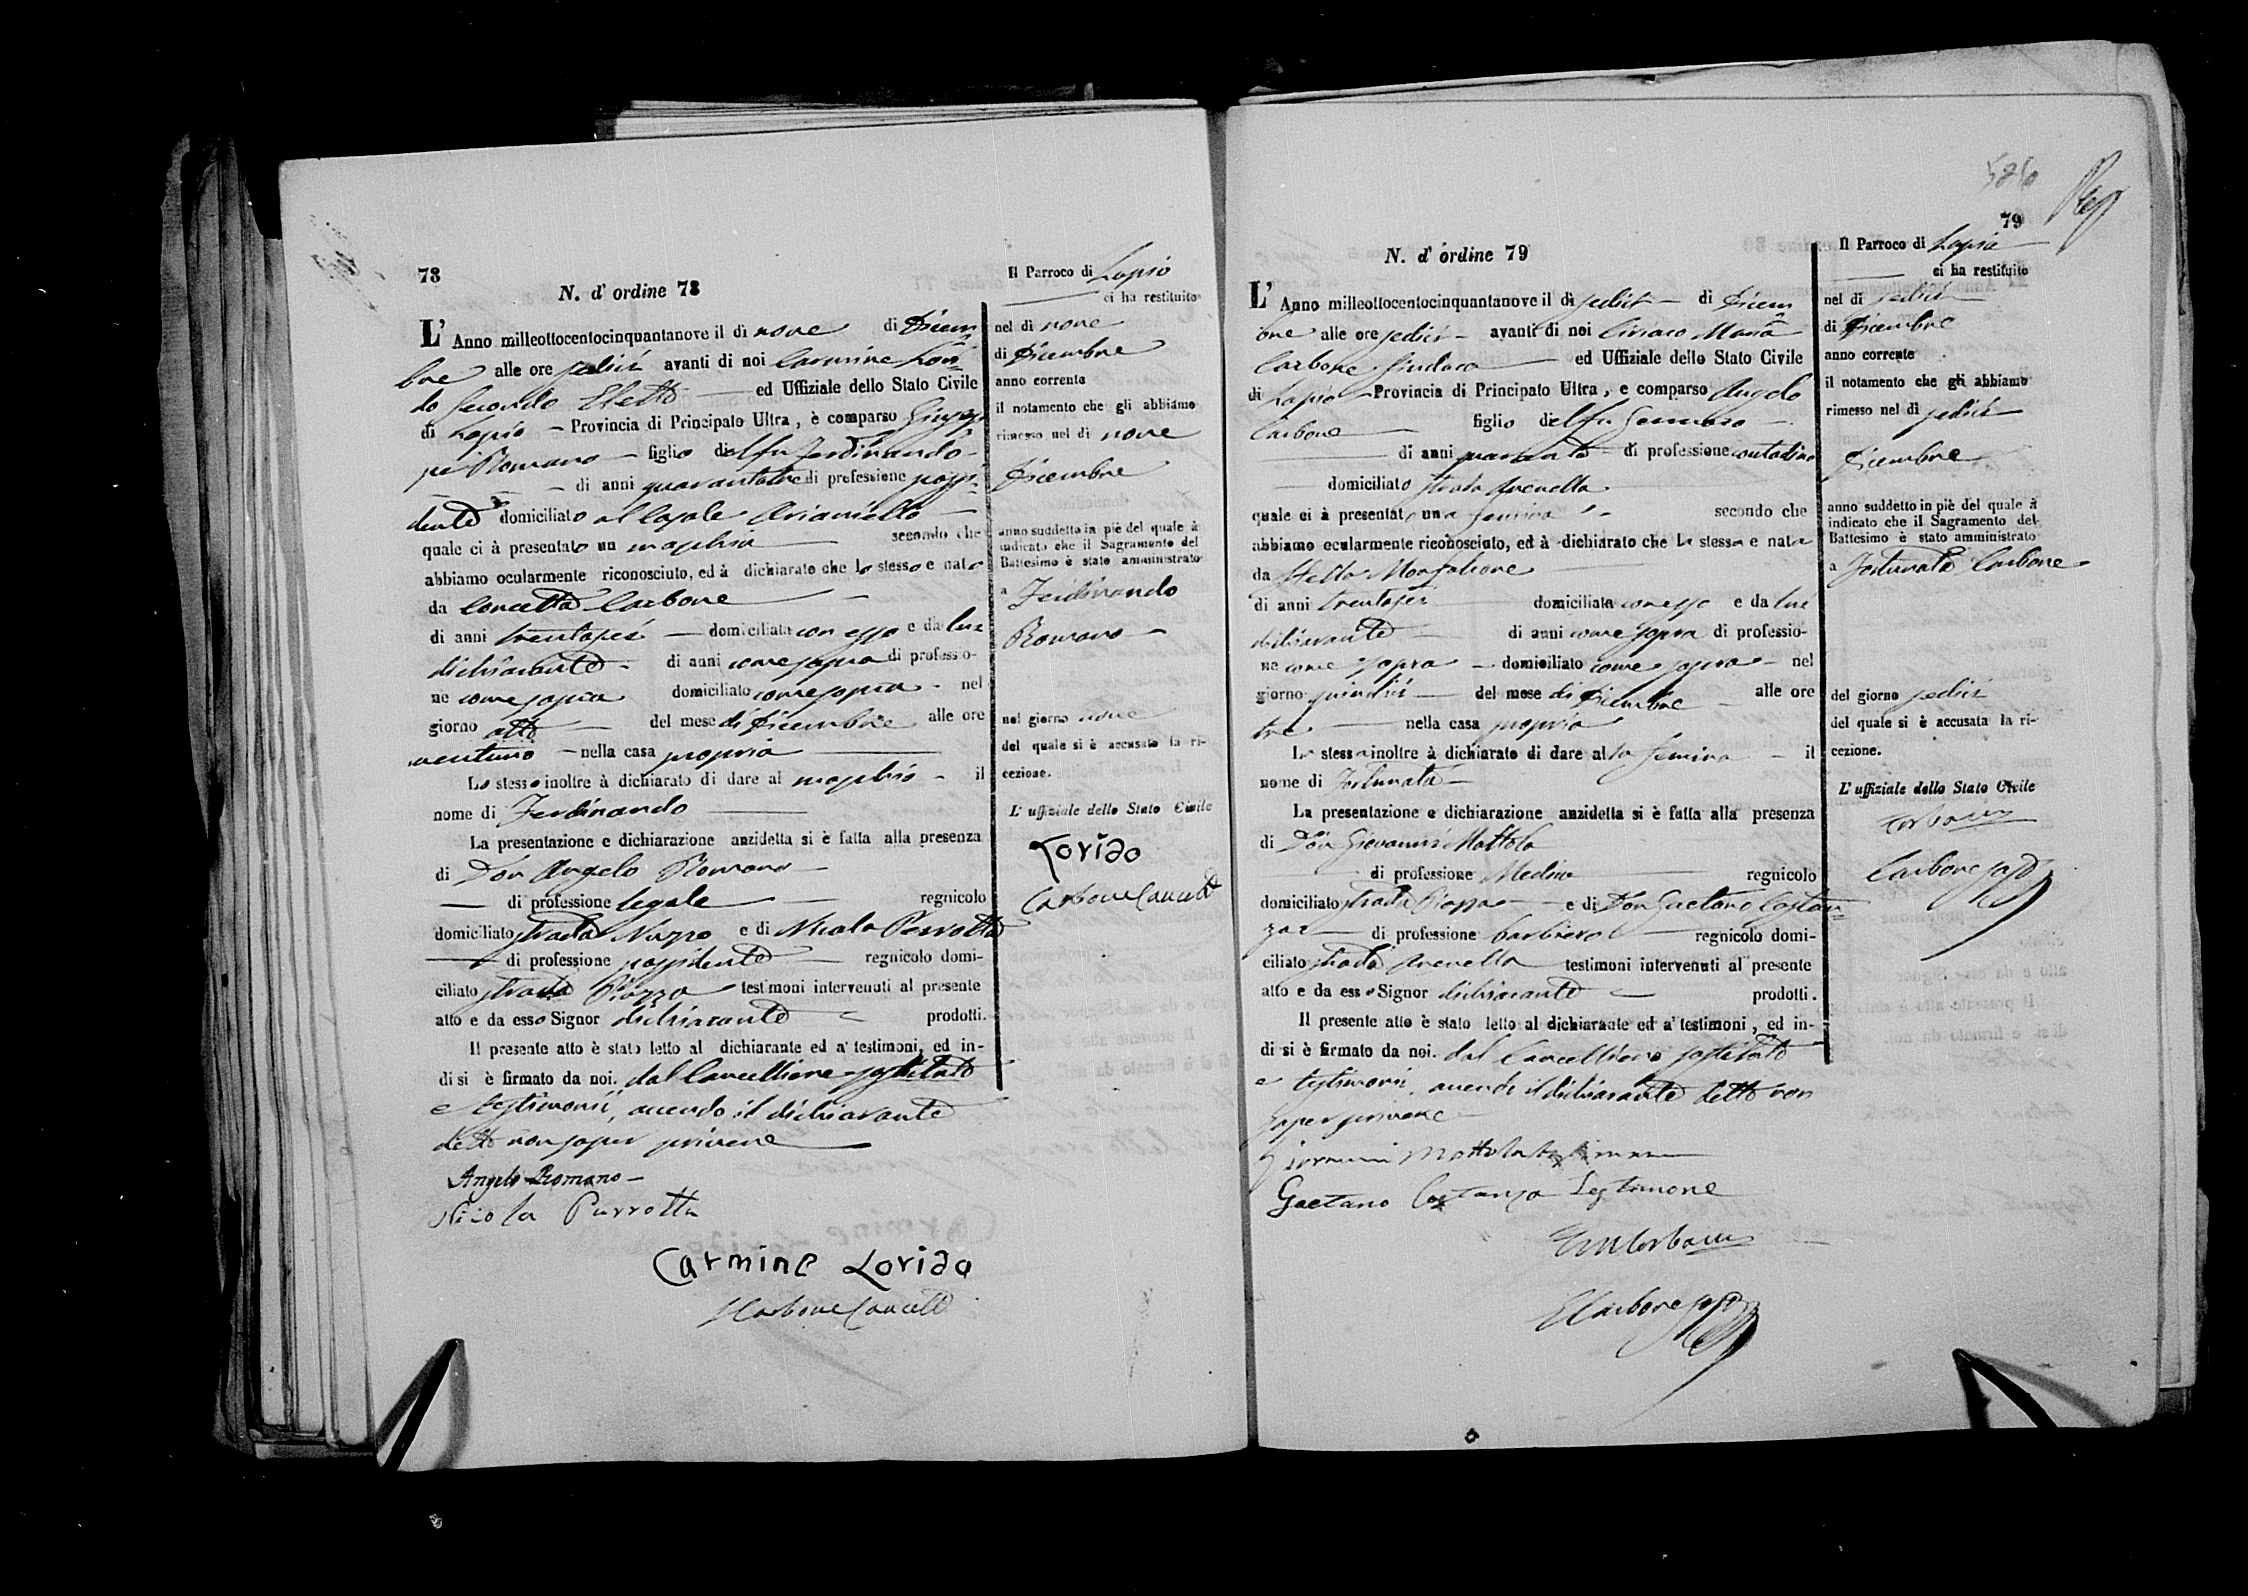 78
N. d' ordine 78
L' Anno milleottocentocinquantanove il di nove di Dicem
bre alle ore sedici avanti di noi Carmine Lori-
do Secondo Eletto ed Uffiziale dello Stato Civile
di Lapio - Provincia di Principato Ultra, è comparso Giusep
pe Romano figlio del fu Ferdinando
di anni quarantatre di professione possi-
dente domiciliato al Casale Arianiello
quale ci à presentato un maschio secondo che
abbiamo ocularmente riconosciuto, ed à dichiarato che lo stesso e nato
da Concetta Carbone
di anni trentasei domiciliata con esso e da lui
dichiarante di anni come sopra di professio-
ne come sopra domiciliato come sopra nel
giorno otto del mese di Dicembre alle ore
ventuno nella casa propria
Lo stesso inoltre à dichiarato di dare al maschio il
nome di Ferdinando
La presentazione e dichiarazione anzidetta si è fatta alla presenza
di Don Angelo Romano
di professione legale regnicolo
domiciliato strada e di Nicola Perrotta
di professione possidente regnicolo domi-
ciliato strada Piazza testimoni intervenuti al presente
atto e da esso Signor dichiarante prodotti.
Il presente atto è stato letto al dichiarante ed a' testimoni, ed in-
di si è firmato da noi. dal Cancelliere sostituto
e testimonii, avendo il dichiarante
detto non saper scrivere
Angelo Romano
Nicola Perrotta
Carmine Lorido
Carbone Cancell
Il Parroco di Lapio
ci ha restituito
nel di nove
di Dicembre
anno corrente
il notamento che gli abbiamo
rimesso nel di nove
Dicembre
anno suddetto in piè del quale à
indicato che il Sagramento del
Battesimo è stato amministrato
a Ferdinando
Romano
nel giorno nove
del quale si è accusata la ri-
cezione.
L' uffiziale dello Stato Civile
Lorido
Carbone Cancell
79
N. d' ordine 79
L' Anno milleottocentocinquantanove il di sedici di Dicem
bre alle ore sedici avanti di noi Ciriaco Maria
Carbone Sindaco ed Uffiziale dello Stato Civile
di Lapio Provincia di Principato Ultra, e comparso Angelo
Carbone figlio del fu Gennaro
di anni quaranta di professione contadino
domiciliato strada Avenella
quale ci à presentato una femina secondo che
abbiamo ocularmente riconosciuto, ed à dichiarato che la stessa e nata
da Stella
di anni trentasei domiciliata con esso e da lui
dichiarante di anni come sopra di professio-
ne come sopra domiciliato come sopra nel
giorno quindici del mese di Dicembre alle ore
tre nella casa propria
Lo stesso inoltre à dichiarato di dare alla femina il
nome di Fortunata
La presentazione e dichiarazione anzidetta si è fatta alla presenza
di Don Giovanni Mottola
di professione Medico regnicolo
domiciliato strada Piazza e di Don Gaetano Costan-
za di professione barbiere regnicolo domi-
ciliato strada Avenella testimoni intervenuti al presente
atto e da esso Signor dichiarante prodotti.
Il presente atto è stato letto al dichiarante ed a' testimoni, ed in-
di si è firmato da noi. dal Cancelliere sostituto
e testimonii, avendo il dichiarante detto non
saper scrivere
Giovanni Mottola testimone
Gaetano Costanza Testimone
Carbone
Il Parroco di Lapio
ci ha restituito
nel di sedici
di Dicembre
anno corrente
il notamento che gli abbiamo
rimesso nel di sedici
Dicembre
anno suddetto in piè del quale à
indicato che il Sagramento del
Battesimo è stato amministrato
a Fortunata Carbone
del giorno sedici
del quale si è accusata la ri-
cezione.
L' uffiziale dello Stato Civile
Carbone